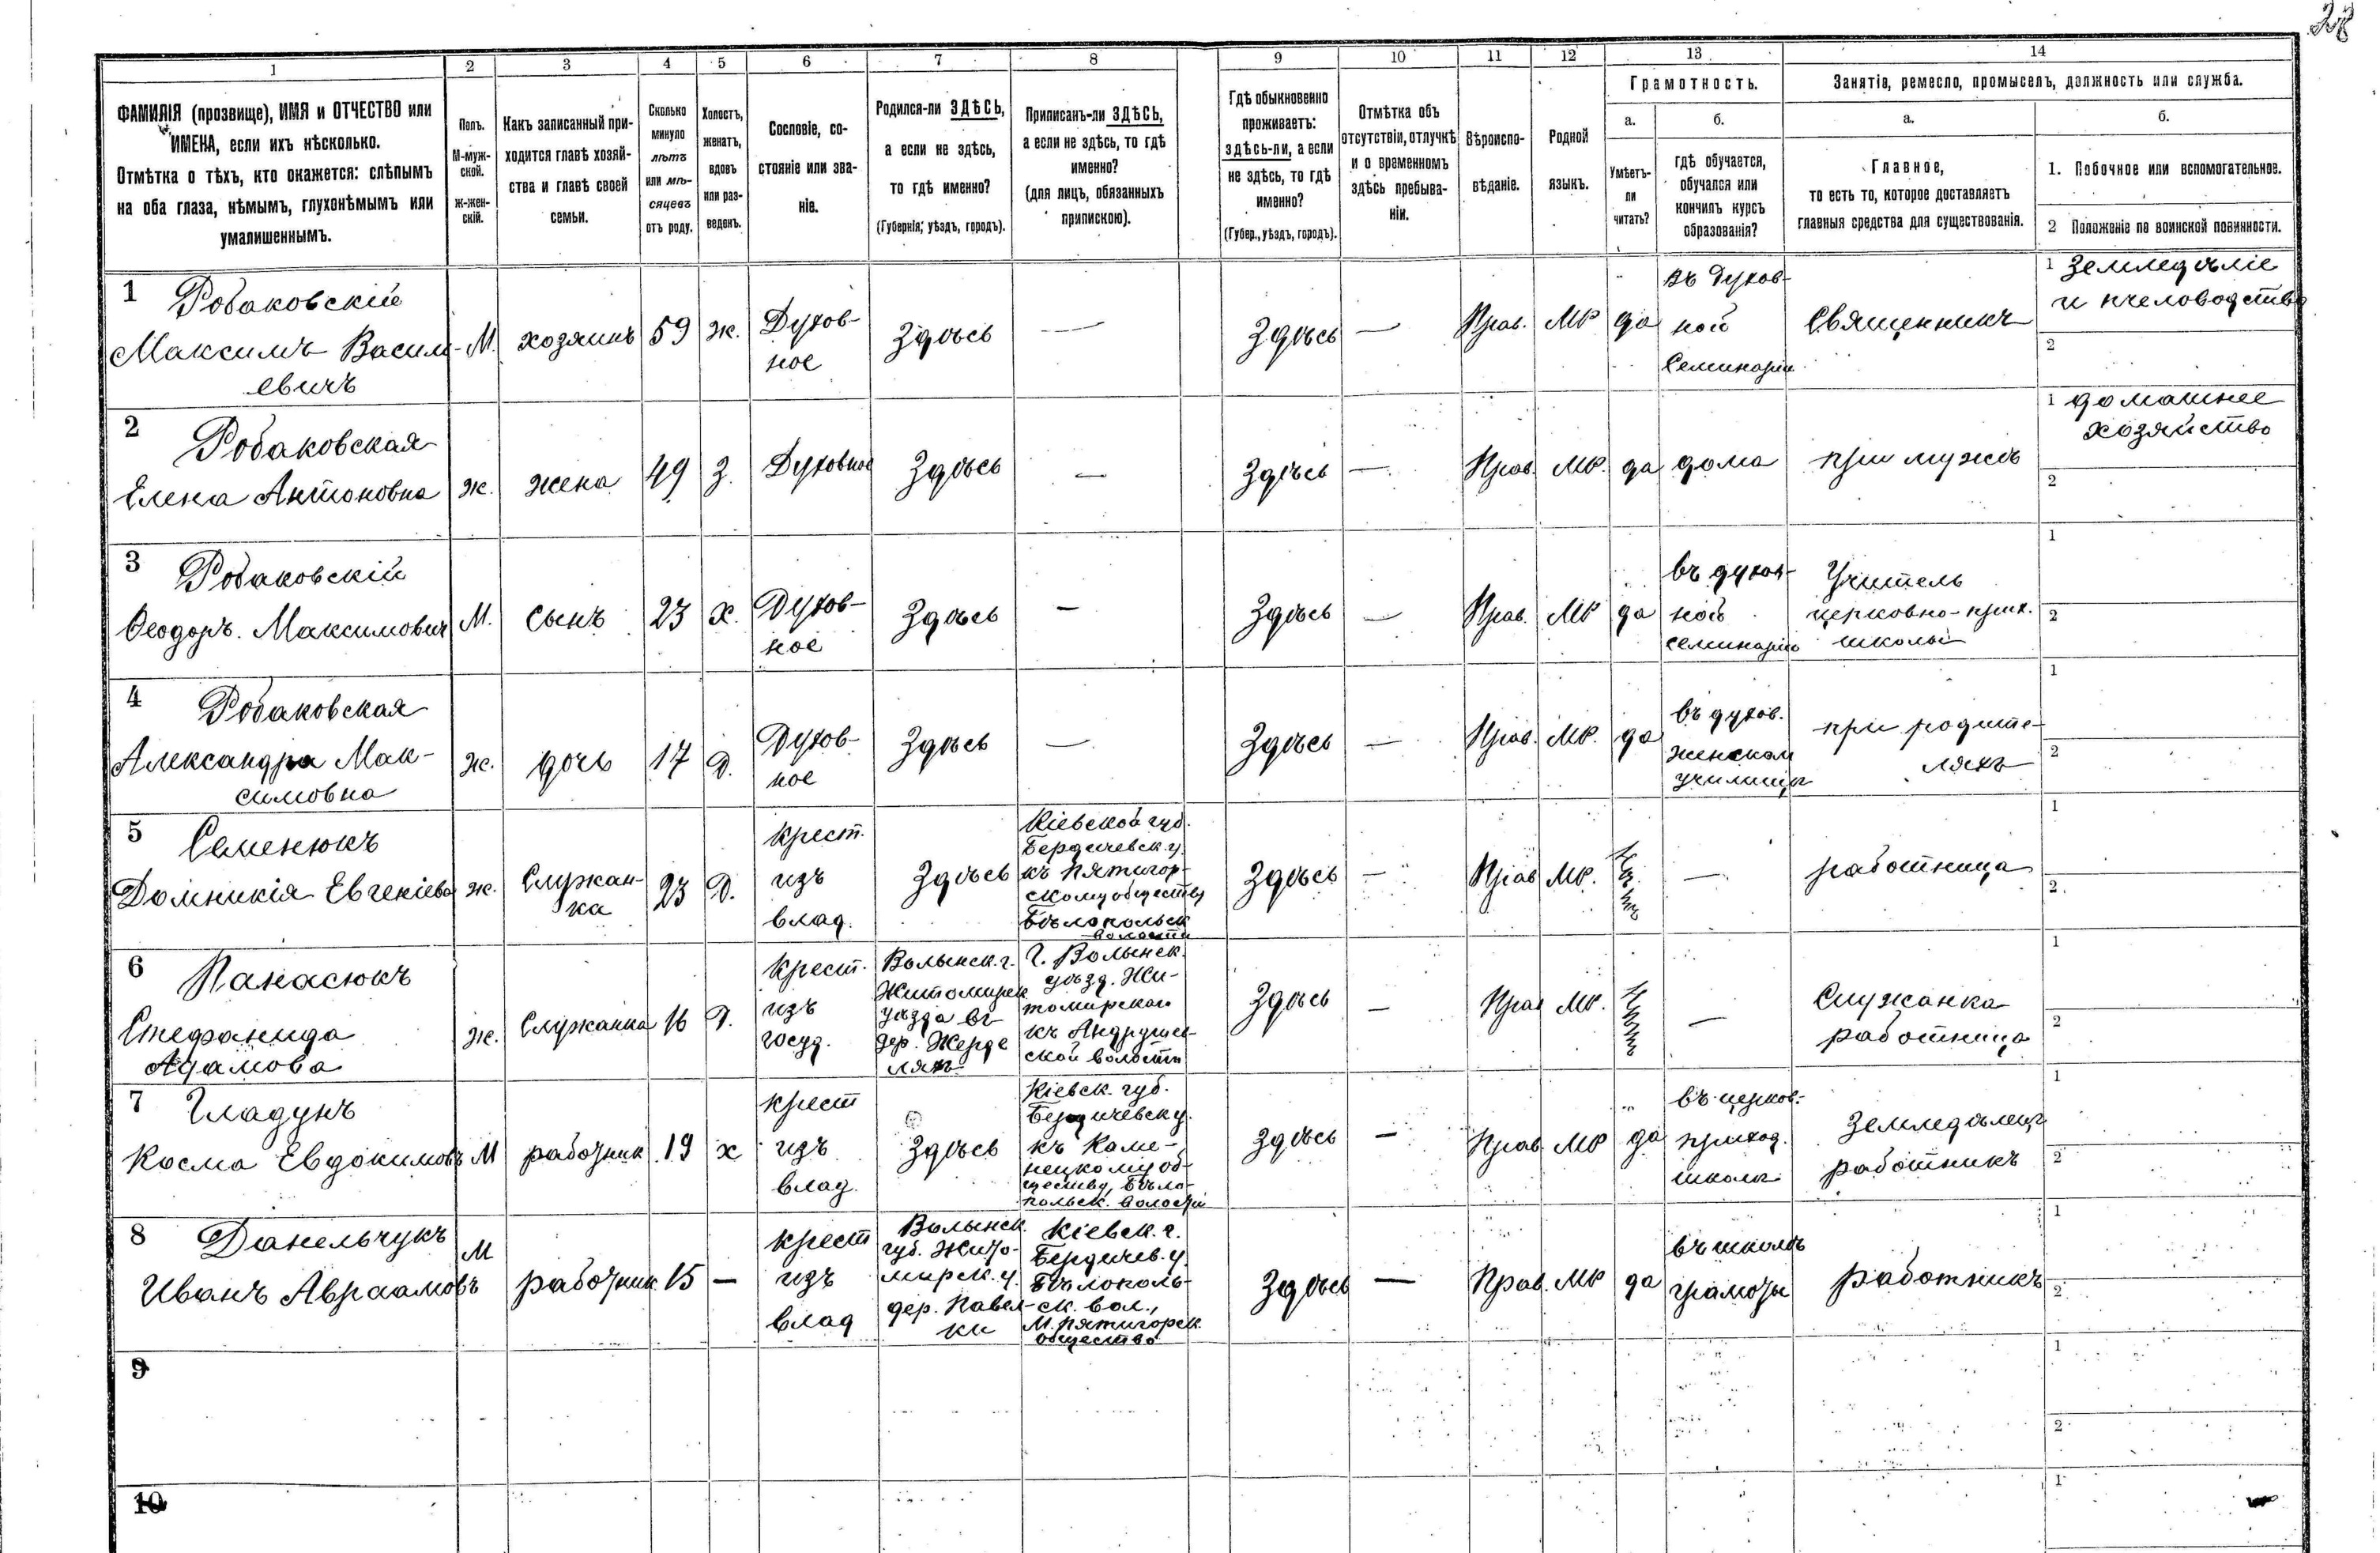 1 2 3 4 5 6 7 8 9 10 11 12 13 14
ФАМИЛІЯ (прозвище), ИМЯ и ОТЧЕСТВО или
ИМЕНА, если ихъ нѣсколько.
Отмѣтка о тѣхъ, кто окажется: слѣпымъ
на оба глаза, нѣмымъ, глухонѣмымъ или
умалишеннымъ.
Полъ.
М-муж-
ской.
ж-жен-
скій.
Какъ записанный при-
ходится главѣ хозяй-
ства и главѣ своей
семьи.
Сколько
минуло
лѣтъ
или мѣ-
сяцевъ
отъ роду.
Холостъ,
женатъ,
вдовъ
или раз-
веденъ.
Сословіе, со-
стояніе или зва-
ніе.
Родился-ли ЗДѢСЬ,
а если не здѣсь,
то гдѣ именно?
(Губернія; уѣздъ, городъ).
Приписанъ-ли ЗДѢСЬ,
а если не здѣсь, то гдѣ
именно?
(для лицъ, обязанныхъ
припискою).
Гдѣ обыкновенно
проживаетъ:
здѣсь-ли, а если
не здѣсь, то гдѣ
именно?
(Губер., уѣздъ, городъ).
Отмѣтка объ
отсутствіи, отлучкѣ
и о временномъ
здѣсь пребыва-
ніи.
Вѣроиспо-
вѣданіе.
Родной
языкъ.
Грамотность.
а.
Умѣетъ-
ли
читать?
б.
гдѣ обучается,
обучался или
кончилъ курсъ
образованія?
Занятія, ремесло, промыселъ, должность или служба.
а.
Главное,
то есть то, которое доставляетъ
главныя средства для существованія.
б.
1. Побочное или вспомогательное.
2 Положеніе по воинской повинности.
1 Робаковскій
Максимъ Васил-
евичъ
М.
хозяинъ
59
ж.
Духов-
ное
Здѣсь
—
Здѣсь
—
Прав.
МР
да
въ Духов-
ной
Семинаріи
Священникъ
1 Земледѣліе
и пчеловодство
2
2 Робаковская
Елена Антоновна
ж.
жена
49
З.
Духовное
Здѣсь
—
Здѣсь
—
Прав.
МР.
да
дома
при мужѣ
1 домашнее
хозяйство
2
3 Робаковскій
Ѳеодоръ. Максимович
М.
сынъ
23
х.
Духов-
ное
Здѣсь
—
Здѣсь
—
Прав.
МР
да
въ духов-
ной
семинаріи
Учитель
церковно-прих.
школы
1
2
4 Робаковская
Александра Мак-
симовна
ж.
дочь
17
Д.
Духов-
ное
Здѣсь
—
Здѣсь
—
Прав.
МР.
да
въ духов.
женском
училищѣ
при родите-
ляхъ
1
2
5 Семенюкъ
Домникія Евгеніева
ж.
Служан-
ка
23
Д.
крест.
изъ
влад.
Здѣсь
Кіевской губ.
Бердичевск. у.
къ Пятигор-
скому обществу
Бѣлопольск
волости
Здѣсь
—
Прав
МР.
—
работница
1
2.
6 Панасюкъ
Стефанида
Адамова
ж.
Служанка
16
Д.
крест.
изъ
госуд.
Волынск. г.
Житомирск
уѣзда въ
дер. Жерде
ляхъ
Г. Волынск.
уѣзд. Жи-
томирскаи
къ Андрушев-
ской волости
Здѣсь
—
Прав
МР.
—
Служанка
работница
1
2
7 Гладунъ
Косма Евдокимовъ
М
работник
19
х
крест
изъ
влад.
Здѣсь
Кіевск. губ.
Бердичевск у.
къ Каме-
нецкому об-
ществу, Бѣло-
польск. волости
здѣсь
—
Прав
МР
да
въ церков.-
приход.
школѣ
Земледѣлецъ
работникъ
1
2
8 Данельчукъ
Иванъ Авраамовъ
М
работник
15
—
крест
изъ
влад
Волынск.
губ. Жито-
мирск. у.
дер. Павел-
ки
Кіевск. г.
Бердичев. у.
Бѣлополь-
ск. вол.,
М. Пятигорск
общество
Здѣсь
—
Прав.
МР
да
въ школѣ
грамоты
работникъ
1
2
9
1
2
10
1